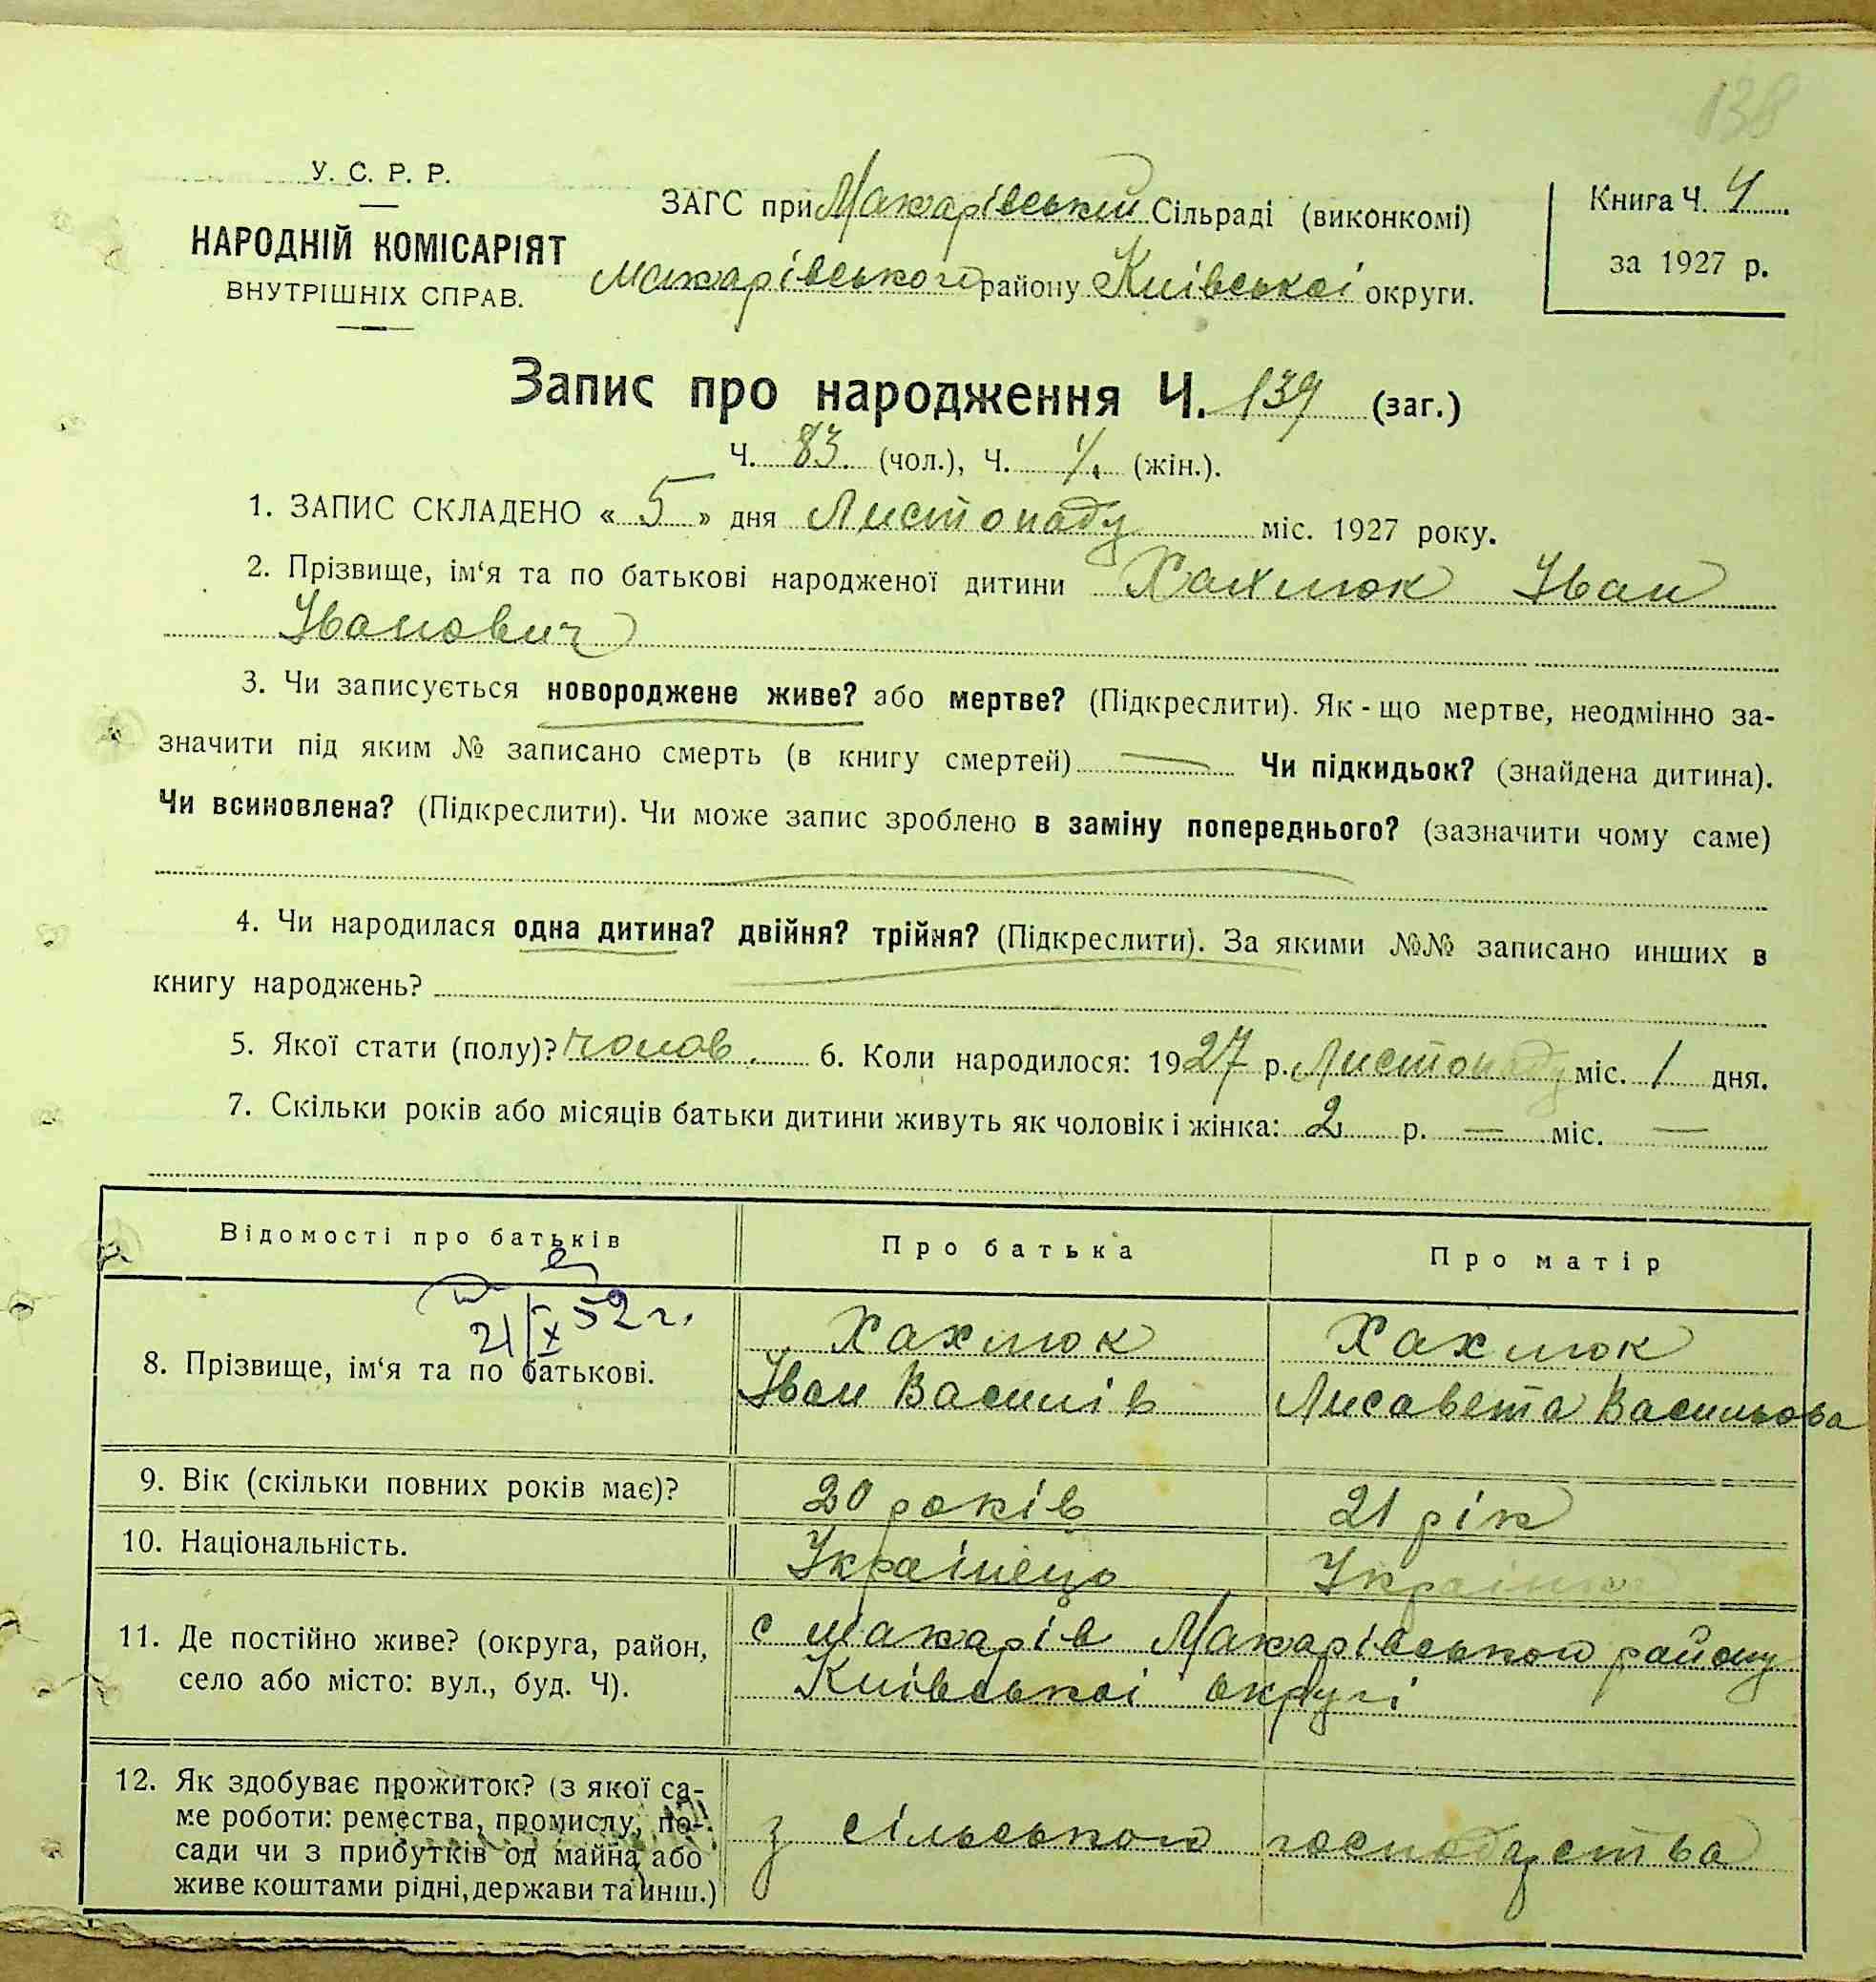 138
У. С. Р. Р.
НАРОДНІЙ КОМІСАРІЯТ
ВНУТРІШНІХ СПРАВ.
ЗАГС при Макарівській Сільраді (виконкомі)
Макарівського району Київської округи.
Книга Ч. 4
за 1927 р.
Запис про народження Ч. 139 (заг.)
Ч. 83. (чол.), Ч. (жін.).
1. ЗАПИС СКЛАДЕНО « 5 » дня Листопаду міс. 1927 року.
2. Прізвище, ім‘я та по батькові народженої дитини Хахлюк Іван
Іванович
3. Чи записується новороджене живе? або мертве? (Підкреслити). Як-що мертве, неодмінно за-
значити під яким № записано смерть (в книгу смертей) — Чи підкидьок? (знайдена дитина).
Чи всиновлена? (Підкреслити). Чи може запис зроблено в заміну попереднього? (зазначити чому саме)
4. Чи народилася одна дитина? двійня? трійня? (Підкреслити). За якими №№ записано инших в
книгу народжень?
5. Якої стати (полу)? чолов. 6. Коли народилося: 1927 р. Листопаду міс. 1 дня.
7. Скільки років або місяців батьки дитини живуть як чоловік і жінка: 2 р. — міс. —
Відомості про батьків Про батька Про матір
21/X 52 г.
8. Прізвище, ім‘я та по батькові. Хахлюк Хахлюк
Іван Василів Лисавета Васильова
9. Вік (скільки повних років має)? 20 років 21 рік
10. Національність. Українець Українка
11. Де постійно живе? (округа, район, с Макарів Макарівського району
село або місто: вул., буд. Ч). Київської округі
12. Як здобуває прожиток? (з якої са-
ме роботи: ремества, промислу, по-
сади чи з прибутків од майна або з сільського господарства
живе коштами рідні, держави та инш.)